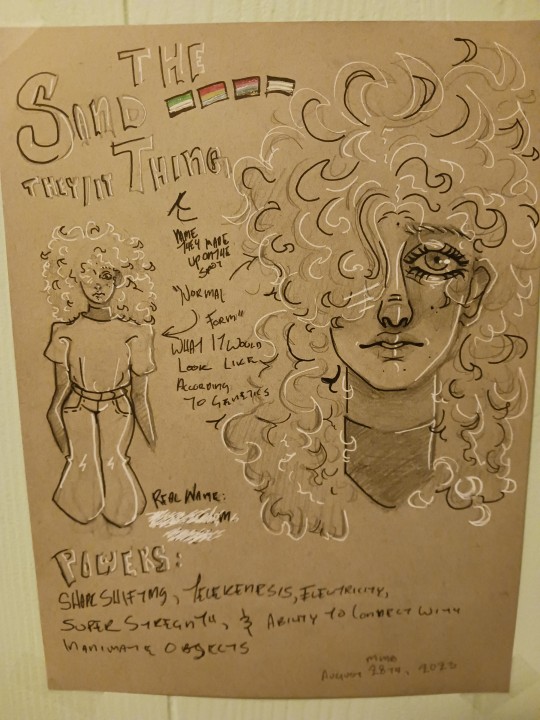 THE
SAND
THEY/IT THING,
NAME
THEY MADE
UP ON THE
SPOT
"NORMAL
FORM"
WHAT IT WOULD
LOOK LIKE
ACCORDING
TO GENETICS
REAL NAME:
POWERS:
SHAPE SHIFTING, TELEKENESIS, ELECTRICITY,
SUPER STREGNTH, & ABILITY TO CONNECT WITH
INANIMATE OBJECTS
AUGUST 28TH, 2023